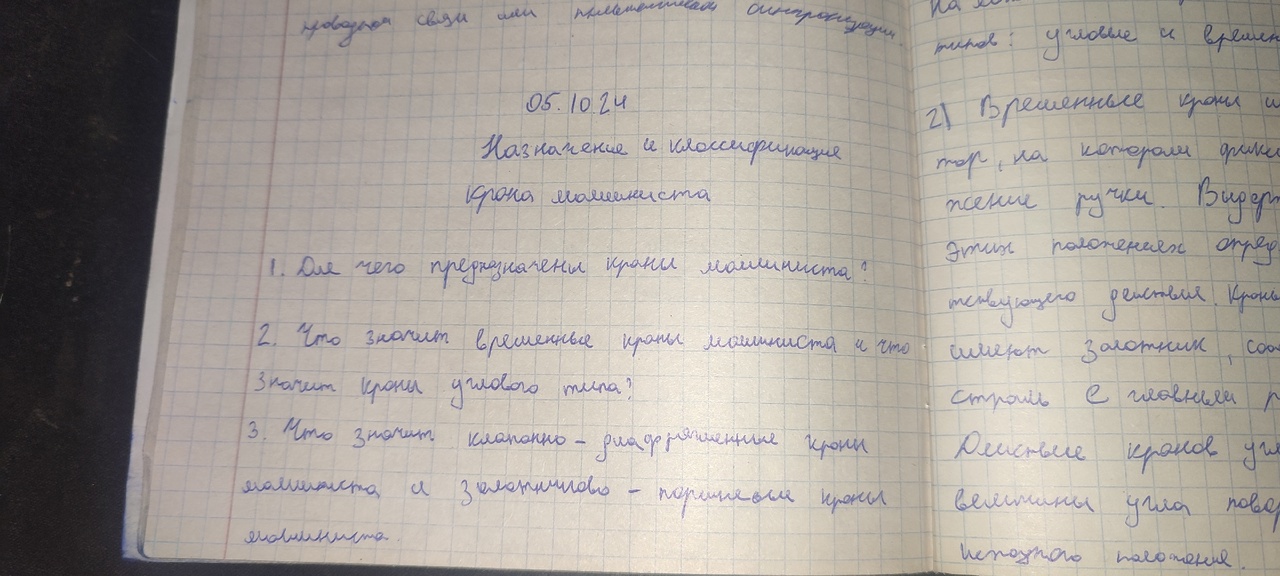 проводной связи или синхронизации.
05.10.24
Назначение и классификация
крана машиниста
1. Для чего предназначены краны машиниста?
2. Что значит временные краны машиниста и что
значит краны углового типа?
3. Что значит клапанно - диафрагменные краны
машиниста и золотниково - поршневые краны
машиниста.
типов: угловые и времен
2) Временные краны и
тор, на котором фикси
жение ручки. Выдерж
этих положениях опред
тствующего действия. Краны
имеют золотник, соо
строить с главным р
Действие кранов угл
величины угла повор
исходного положения.